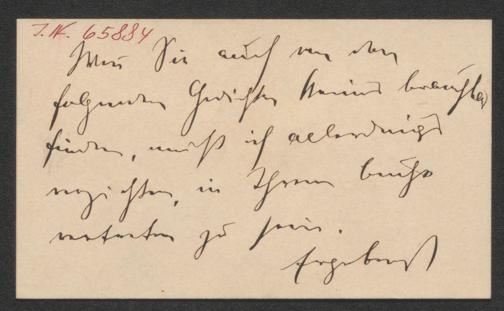 I.N. 65884
Wenn Sie auch von den
folgenden Gedichten keines brauchbar
finden, muß ich allerdings
verzichten, in Ihrem Buche
vertreten zu sein.
Ergebenst